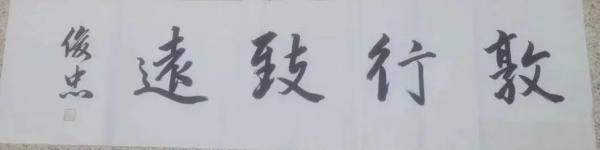 敦行致遠
俊忠